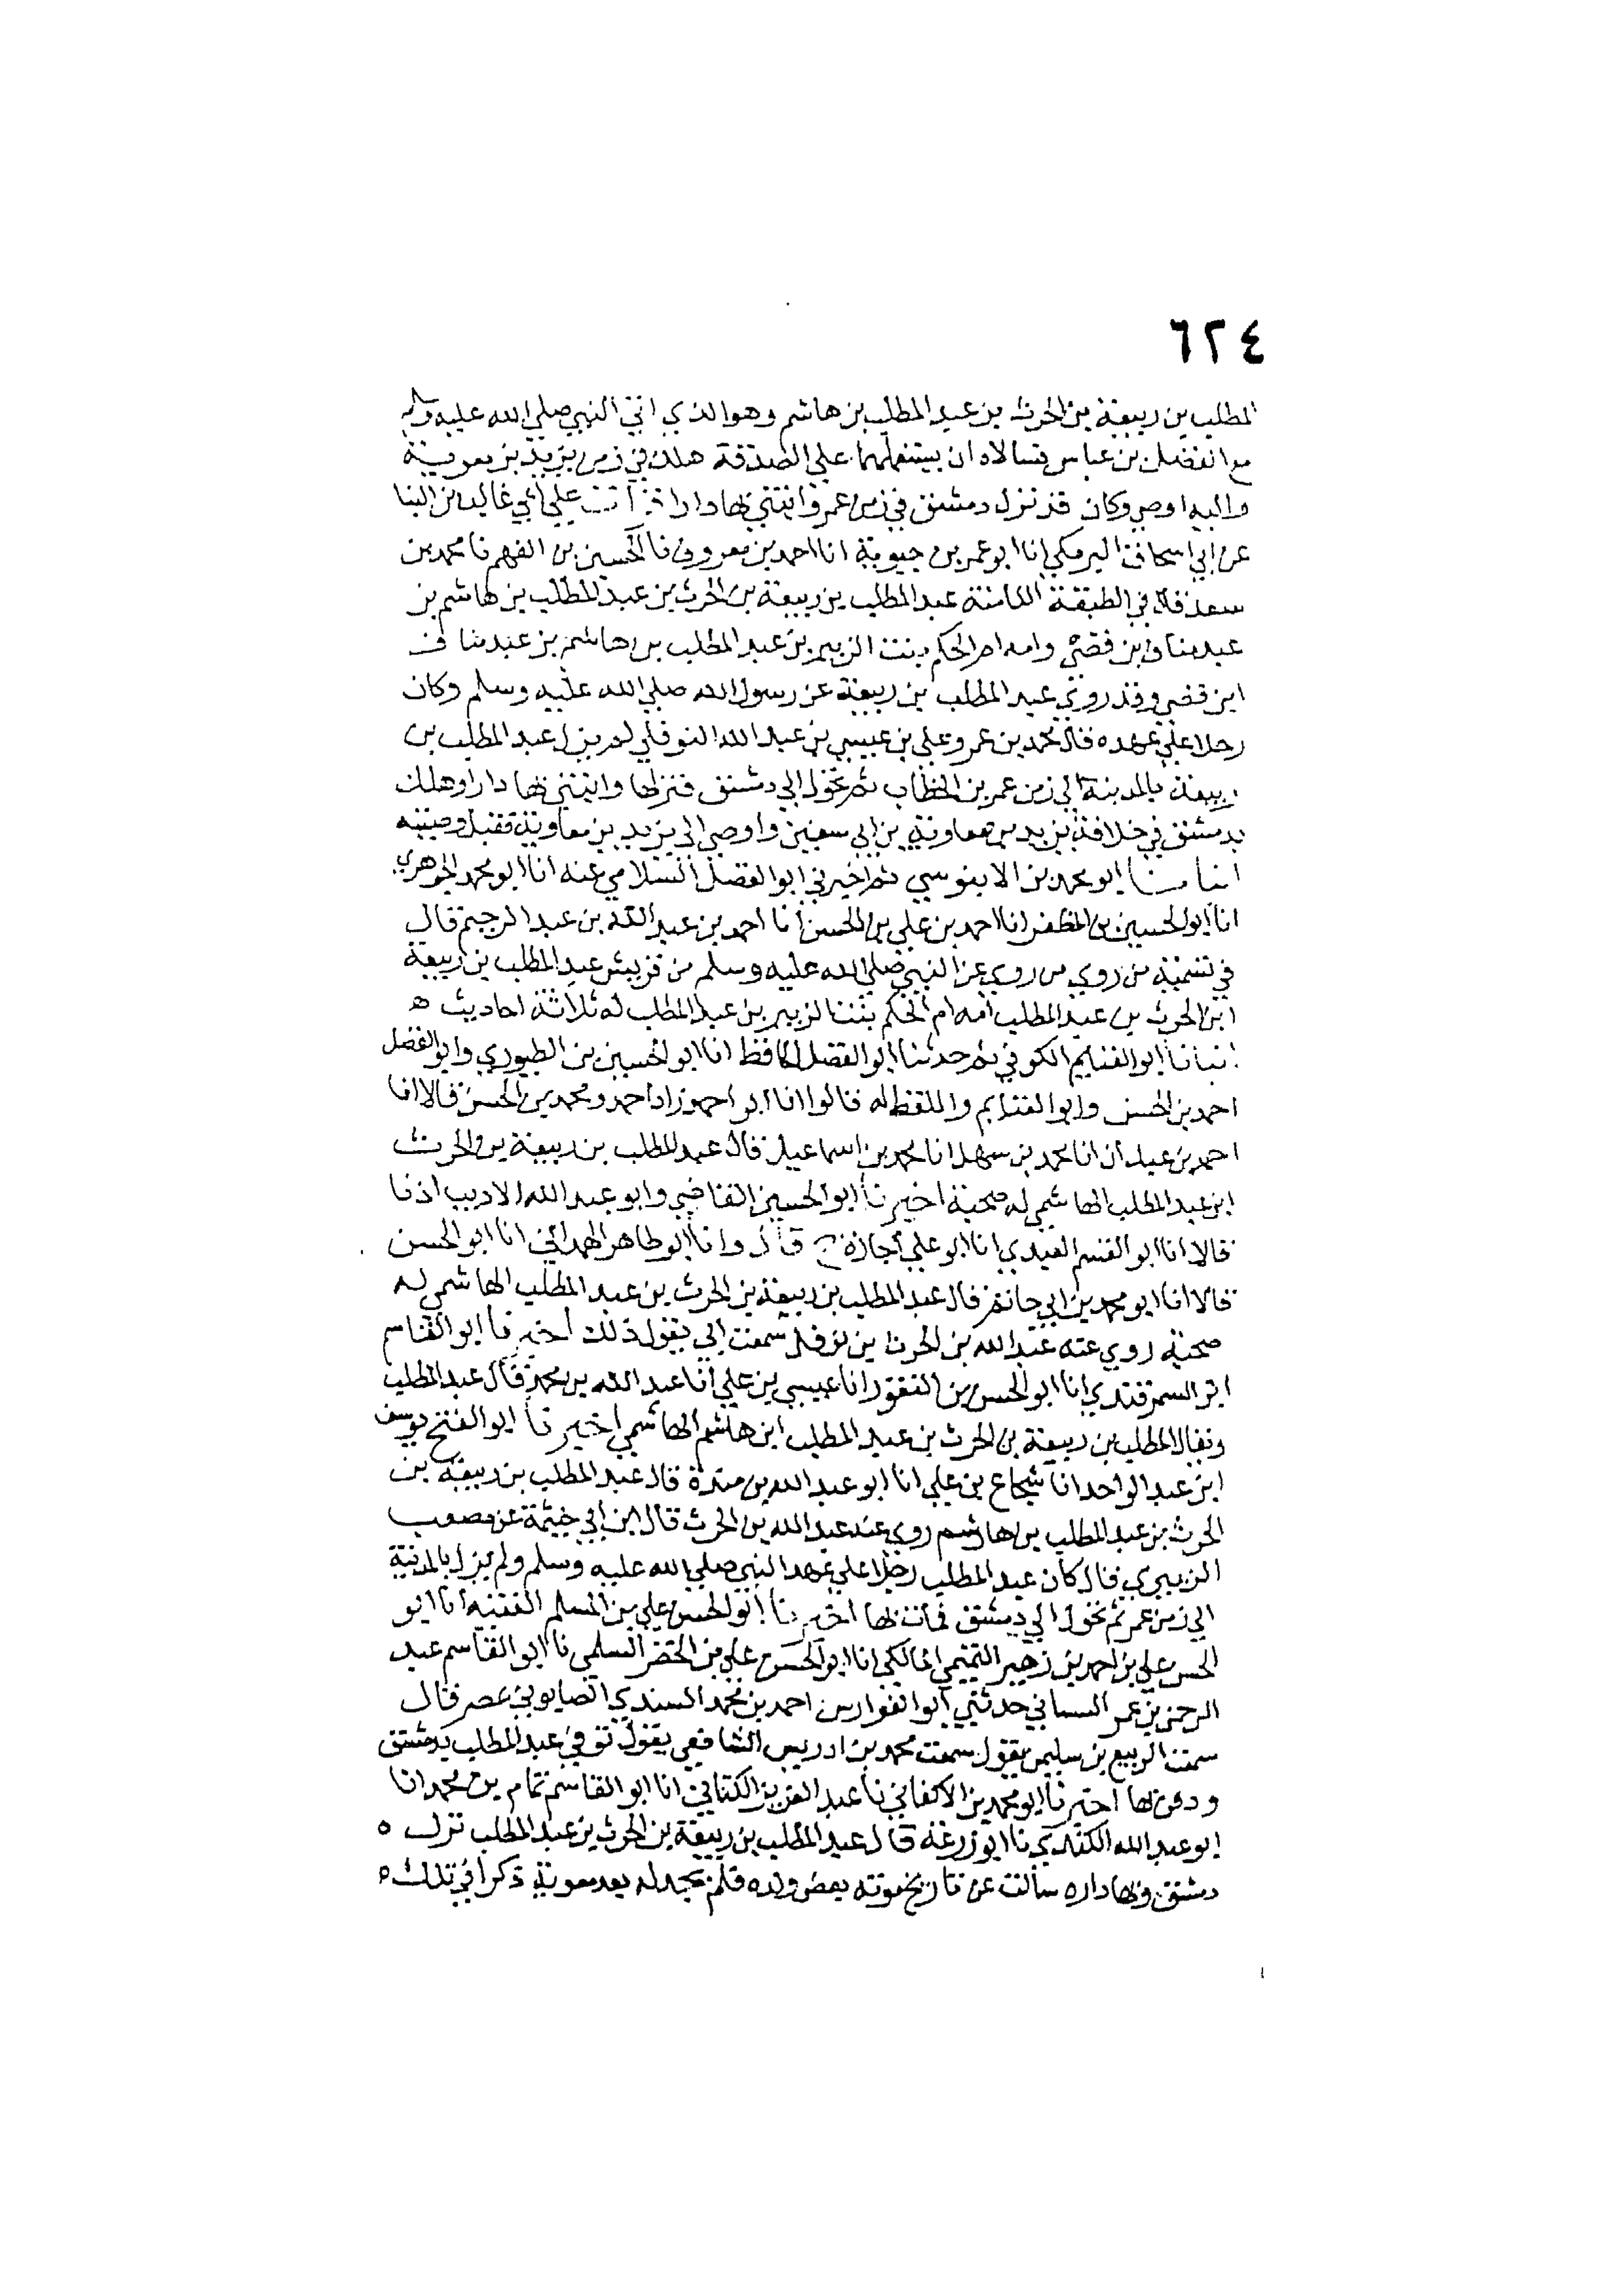 ٦٢٤
المطلب بن ربيعة بن الحرث بن عبد المطلب بن هاشم وهو الذي اتى النبي صلي الله عليه وسلم
مع الفضل بن عباس فسالاه ان يستعملهما علي الصدقة هلك في زمن يزيد بن معوية
واليه اوصي وكان قد نزل دمشق في زمن عمر وابتني بها دارا قرأت علي أبي غالب بن البنا
عن أبي اسحاق البرمكي انا ابو عمر بن حيوية انا احمد بن معروف نا الحسين بن الفهم نا محمد بن
سعد قال في الطبقة عبد المطلب بن ربيعة بن الحرث بن عبد المطلب بن هاشم بن
عبد مناف بن قصي وامه ام الحكم بنت الزبير بن عبد المطلب بن هاشم بن عبد مناف
ابن قصي وقد روي عبد المطلب بن ربيعة عن رسول الله صلي الله عليه وسلم وكان
رجلا علي عهده قال محمد بن عمر وعلي بن عيسي بن عبد الله النوفلي لم يزل عبد المطلب بن
ربيعة بالمدينة الي زمن عمر بن الخطاب ثم تحول الي دمشق فنزلها وابتني بها دارا وهلك
بدمشق في خلافة يزيد بن معاوية بن ابي سفين واوصي الي يزيد بن معاوية فقبل وصيته
انبأنا ابو محمد بن الابنوسي ثم اخبرني ابو الفضل السلامي عنه انا ابو محمد الجوهري
انا ابو الحسين بن المظفر انا احمد بن علي بن الحسن انا احمد بن عبد الله بن عبد الرحيم قال
في تسمية من روي من روي عن النبي صلي الله عليه وسلم من قريش عبد المطلب بن ربيعة
ابن الحرث بن عبد المطلب أمه ام الحكم بنت الزبير بن عبد المطلب له ثلاثة احاديث ه
انبانا ابو الغنايم الكوفي ثم حدثنا ابو الفضل الحافظ انا ابو الحسين بن الطيوري وابو الفضل
احمد بن الحسن وابو الغنايم واللفظ له قالوا انا ابو احمد زاد احمد ومحمد بن الحسن قالا انا
احمد بن عبدان انا محمد بن سهل انا محمد بن اسماعيل قال عبد المطلب بن ربيعة بن الحرث
ابن عبد المطلب الهاشمي له صحبة اخبرنا ابو الحسين القاضي وابو عبد الله الاديب اذنا
قالا انا ابو القسم العبدي انا ابو علي أجازة ح قال وانا ابو طاهر الهمداني انا ابو الحسن
قالا انا ابو محمد بن ابي حاتم قال عبد المطلب بن ربيعة بن الحرث بن عبد المطلب الهاشمي له
صحبة روي عنه عبد الله بن الحرث بن نوفل سمعت ابي يقول ذلك أخبرنا ابو القاسم
ابن السمرقندي انا ابو الحسن بن النقور انا عيسي بن علي أنا عبد الله بن محمد قال عبد المطلب
ويقال المطلب بن ربيعة بن الحرث بن عبد المطلب ابن هاشم الهاشمي اخبرنا ابو الفتح يوسف
ابن عبد الواحد انا شجاع بن علي انا ابو عبد الله بن مندة قال عبد المطلب بن ربيعة بن
الحرث بن عبد المطلب بن هاشم روي عنه عبد الله بن الحرث قال ابن أبي خيثمة عن مصعب
الزبيري قال كان عبد المطلب رجلا علي عهد النبي صلي الله عليه وسلم ولم يزل بالمدينة
الي زمن عمر ثم تحول الي دمشق فمات بها اخبرنا ابو الحسن علي بن المسلم الفقيه أنا ابو
الحسن علي بن احمد بن زهير التميمي المالكي انا ابو الحسن علي بن الخضر السلمي نا ابو القاسم عبد
الرحمن بن عمر حدثني ابو الفوارس احمد بن محمد السندي الصابوني بمصر قال
سمعت الربيع بن سليمن يقول سمعت محمد بن ادريس الشافعي يقول توفي عبد المطلب بدمشق
ودفن بها اخبرنا ابو محمد بن الاكفاني نا عبد العزيز الكتاني انا ابو القاسم تمام بن محمد انا
ابو عبد الله الكندي نا ابو زرعة قال عبد المطلب بن ربيعة بن الحرث بن عبد المطلب نزل ه
دمشق وبها داره سألت عن تاريخ موته بعض ولده فلم نجد له بعد معوية ذكرا في تلك ه